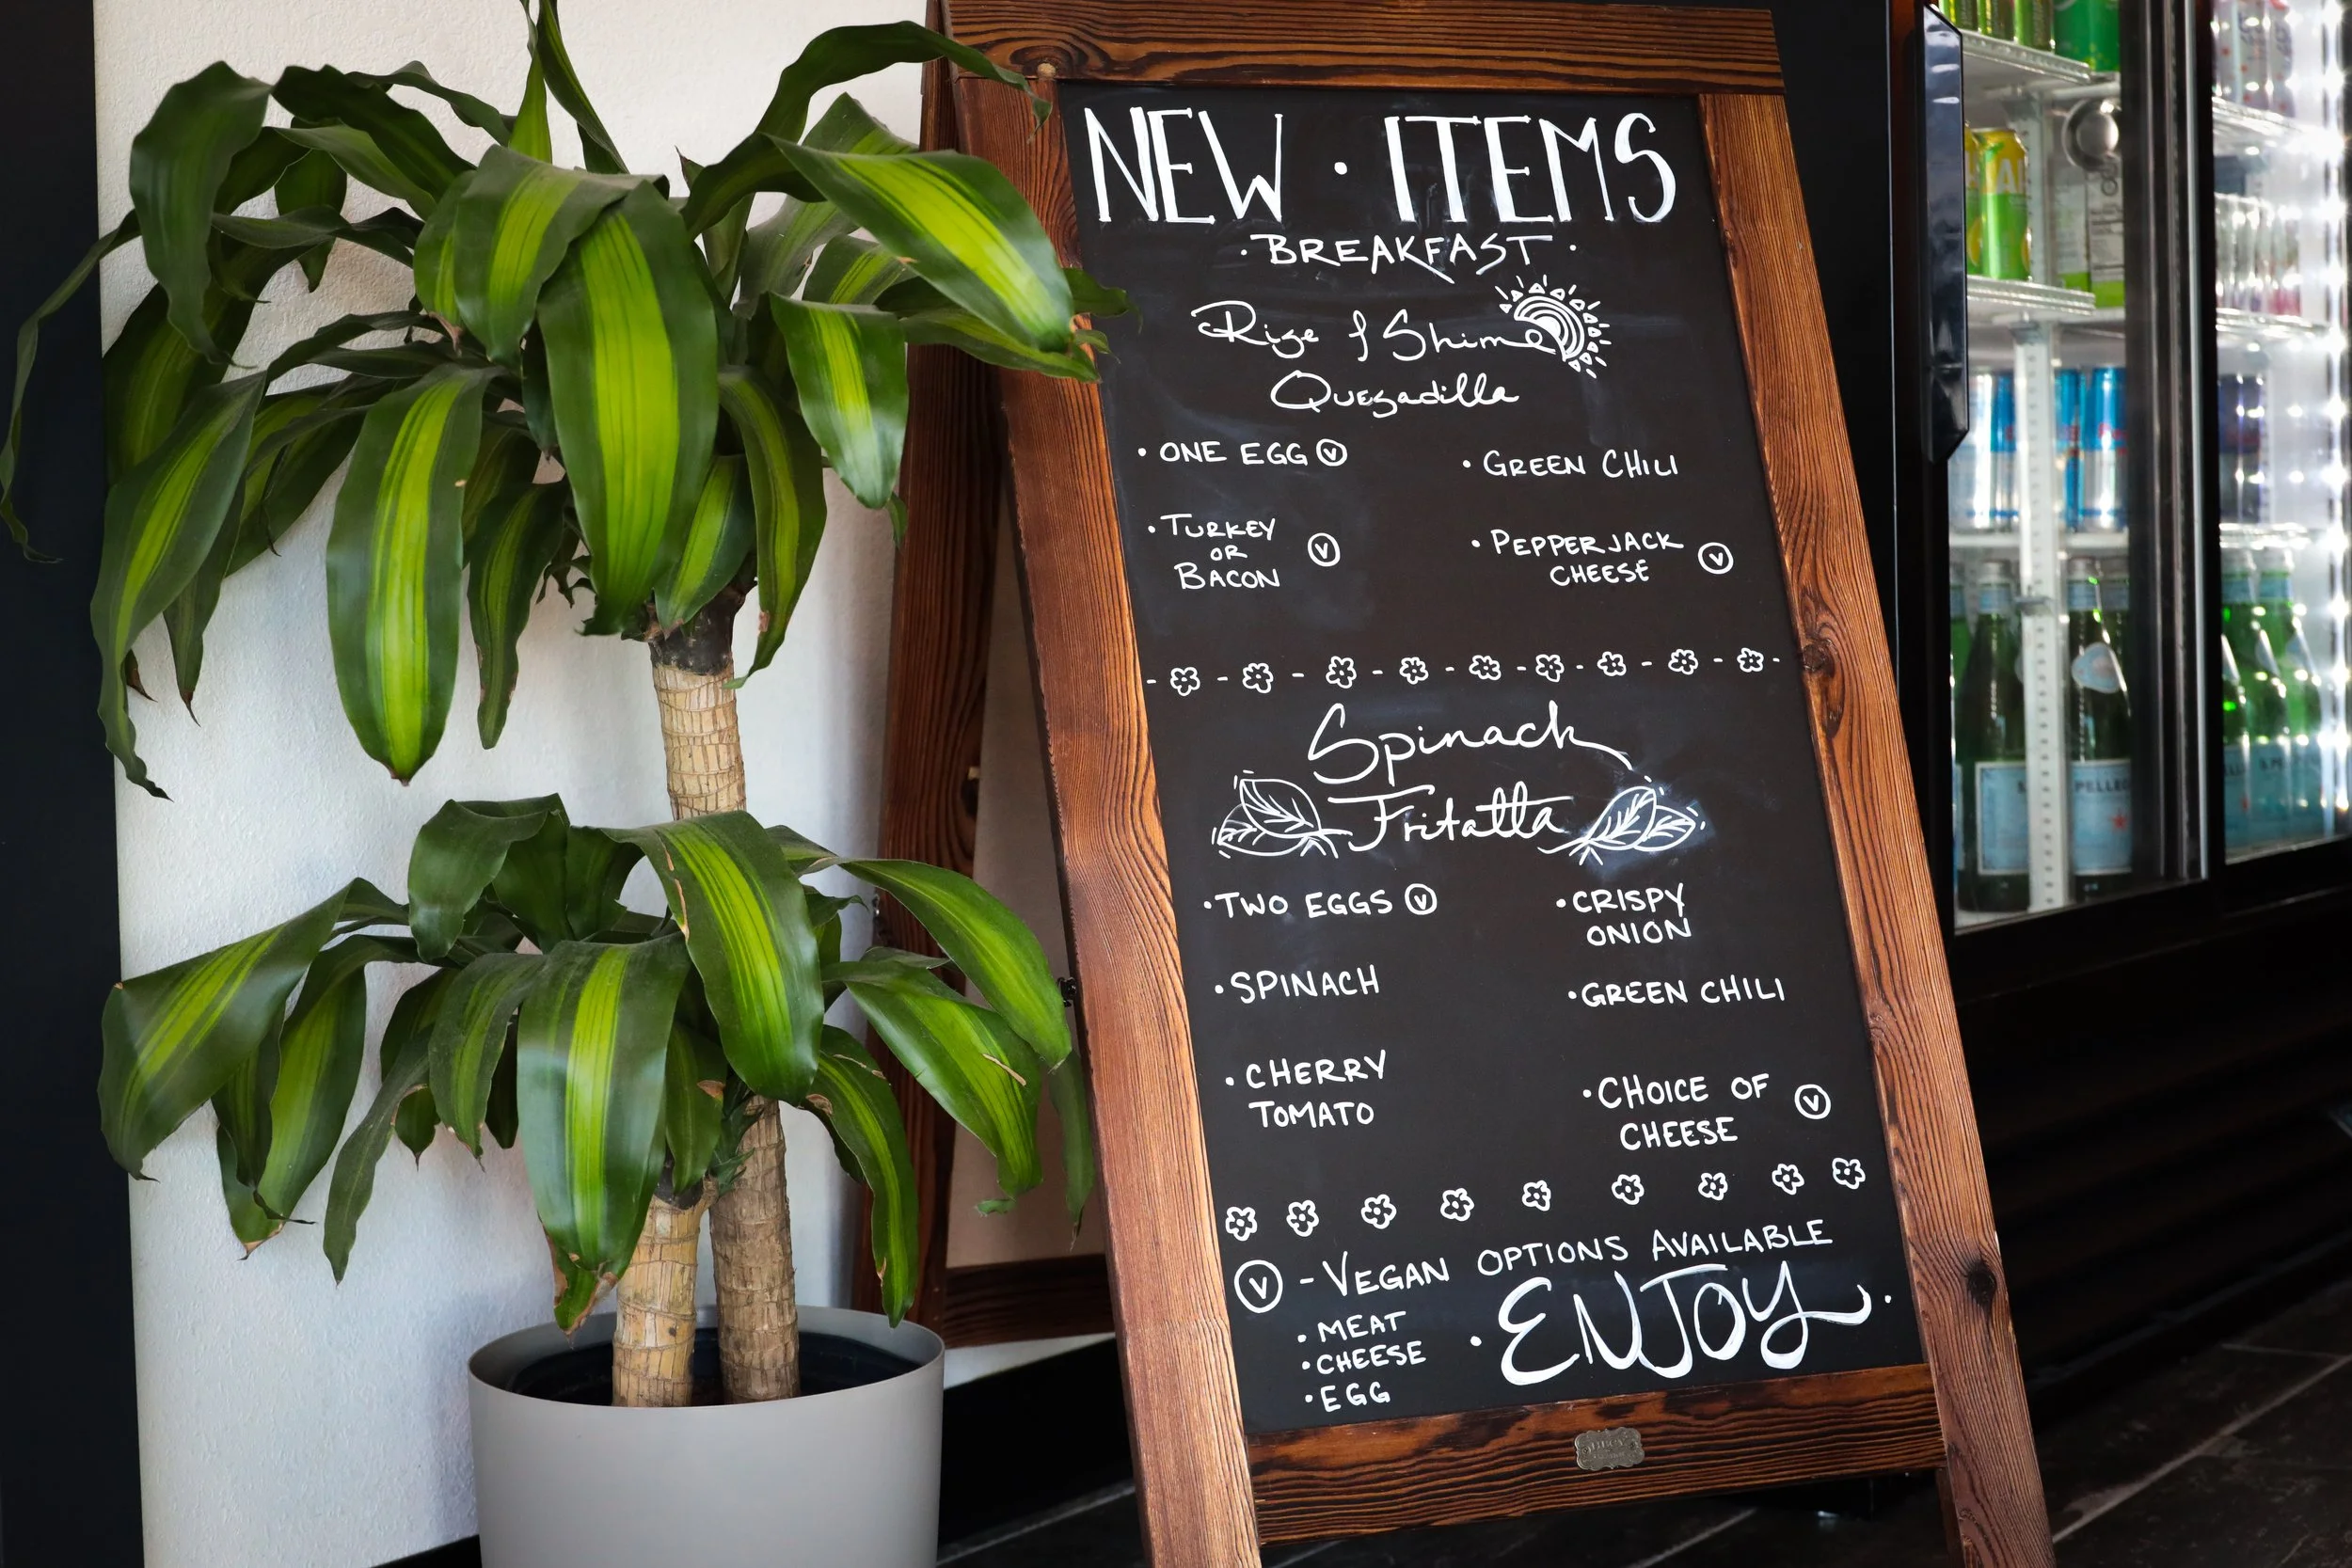 NEW · ITEMS
· BREAKFAST ·
Rise & Shine
Quesadilla
· ONE EGG Ⓥ
· GREEN CHILI
· TURKEY
OR
BACON Ⓥ
· PEPPERJACK
CHEESE Ⓥ
Spinach
Fritatta
· TWO EGGS Ⓥ
· CRISPY
ONION
· SPINACH
· GREEN CHILI
· CHERRY
TOMATO
· CHOICE OF
CHEESE Ⓥ
Ⓥ - VEGAN OPTIONS AVAILABLE
· MEAT
· CHEESE
· EGG
· ENJOY ·
PELLEG